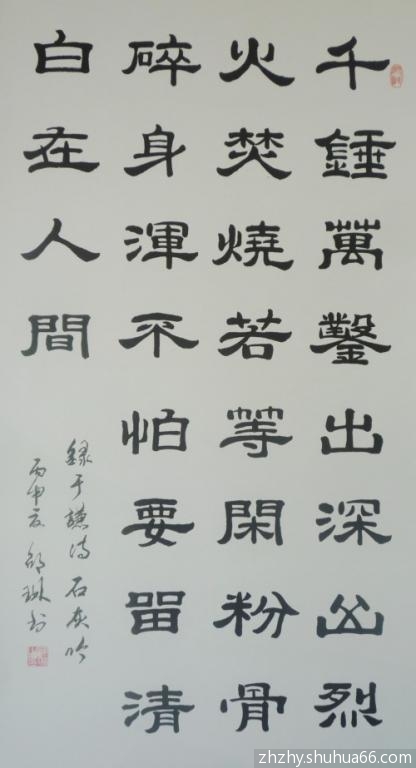 千錘萬鑿出深山烈
火焚燒若等閑粉骨
碎身渾不怕要留清
白在人間
錄于謙詩石灰吟
丙申夏邵琳书
zhzhy.shuhua66.com